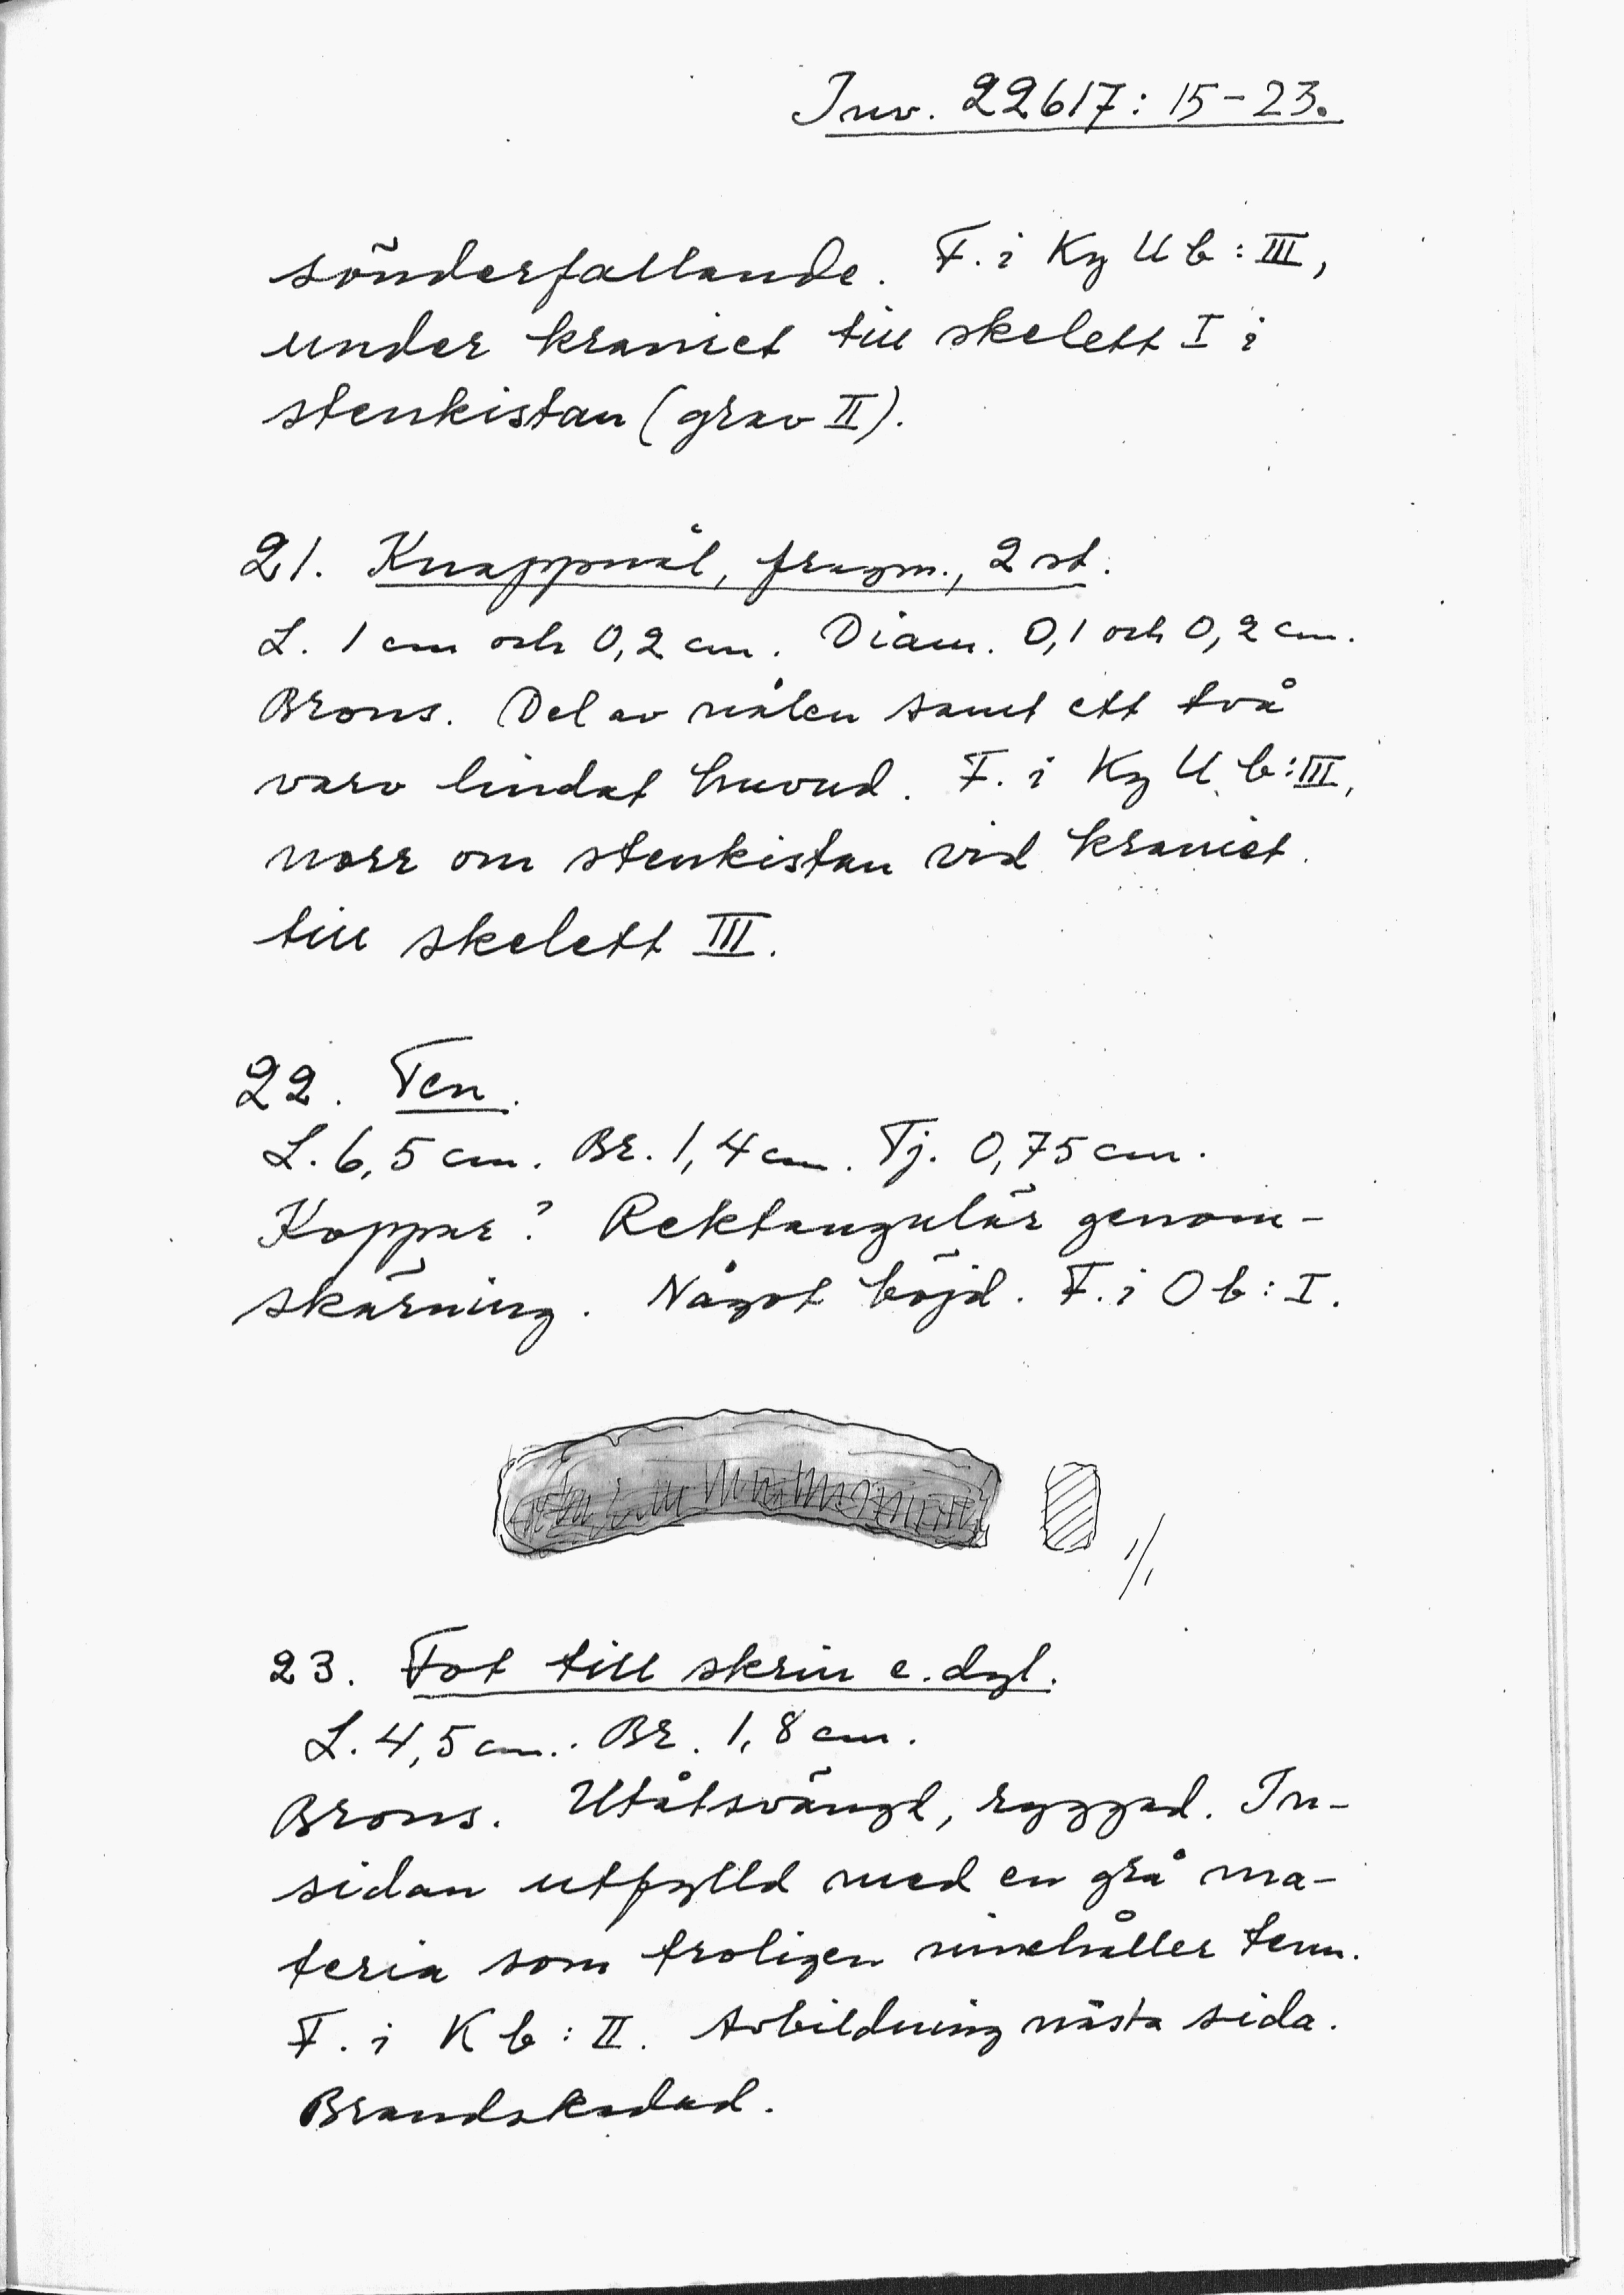 Inv. 22617: 15-23.
sönderfallande. F. i Ky U b: III,
under kraniet till skelett I i
stenkistan (grav II).
21. Knappnål, fragm., 2 st.
L. 1 cm och 0,2 cm. Diam. 0,1 och 0,2 cm.
Brons. Del av nålen samt ett två
varv lindat huvud. F. i Ky U b: III,
norr om stenkistan vid kraniet
till skelett III.
22. Ten.
L. 6,5 cm. Br. 1,4 cm. Tj. 0,75 cm.
Koppar? Rektangulär genom-
skärning. Något böjd. F. i O b: I.
1/1
23. Fot till skrin e. dyl.
L. 4,5 cm. Br. 1,8 cm.
Brons. Utåtsvängd, ryggad. In-
sidan utfylld med en grå ma-
teria som troligen innehåller tenn.
F. i K b: II. Avbildning nästa sida.
Brandskadad.